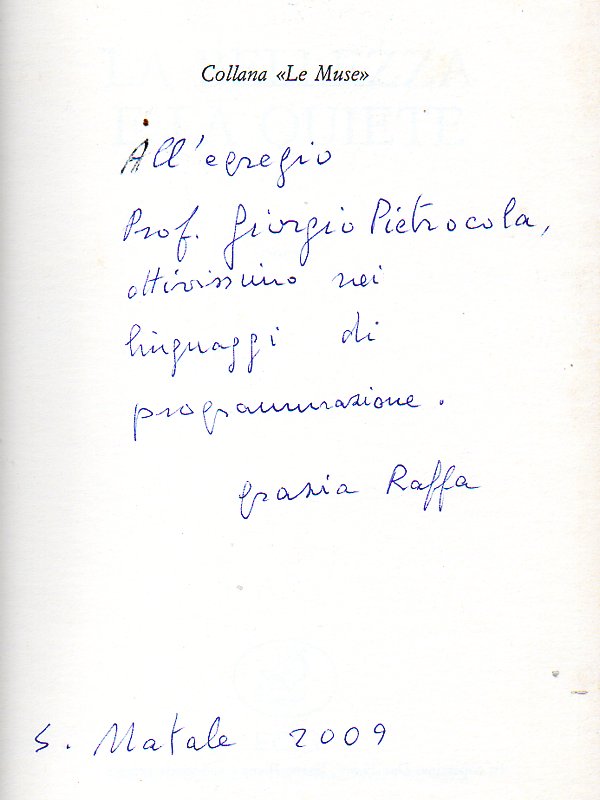 Collana «Le Muse»
All'egregio
Prof. Giorgio Pietrocola,
attivissimo nei
linguaggi di
programmazione.
Grazia Raffa
S. Natale 2009